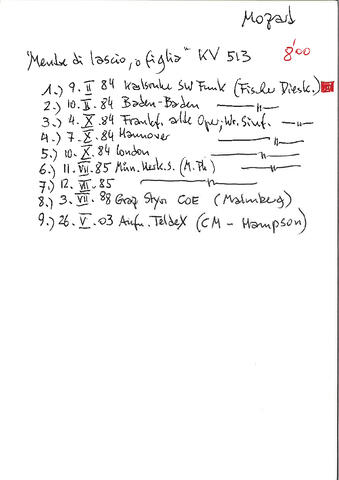 Mozart
"Mentre di lascio, o figlia" KV 513 8'00
1.) 9. II. 84 Karlsruhe SW Funk (Fischer Diesk.)
2.) 10. II. 84 Baden-Baden —"—
3.) 4. X. 84 Frankf. alte Oper, Wr. Sinf. —"—
4.) 7. X. 84 Hannover —"—
5.) 10. X. 84 London —"—
6.) 11. VII. 85 Mün. Herk.S. (M. Ph) —"—
7.) 12. VII. 85 —"—
8.) 3. VII. 88 Graz Styr COE (Malmberg)
9.) 26. V. 03 Aufn. TeldeX (CM - Hampson)